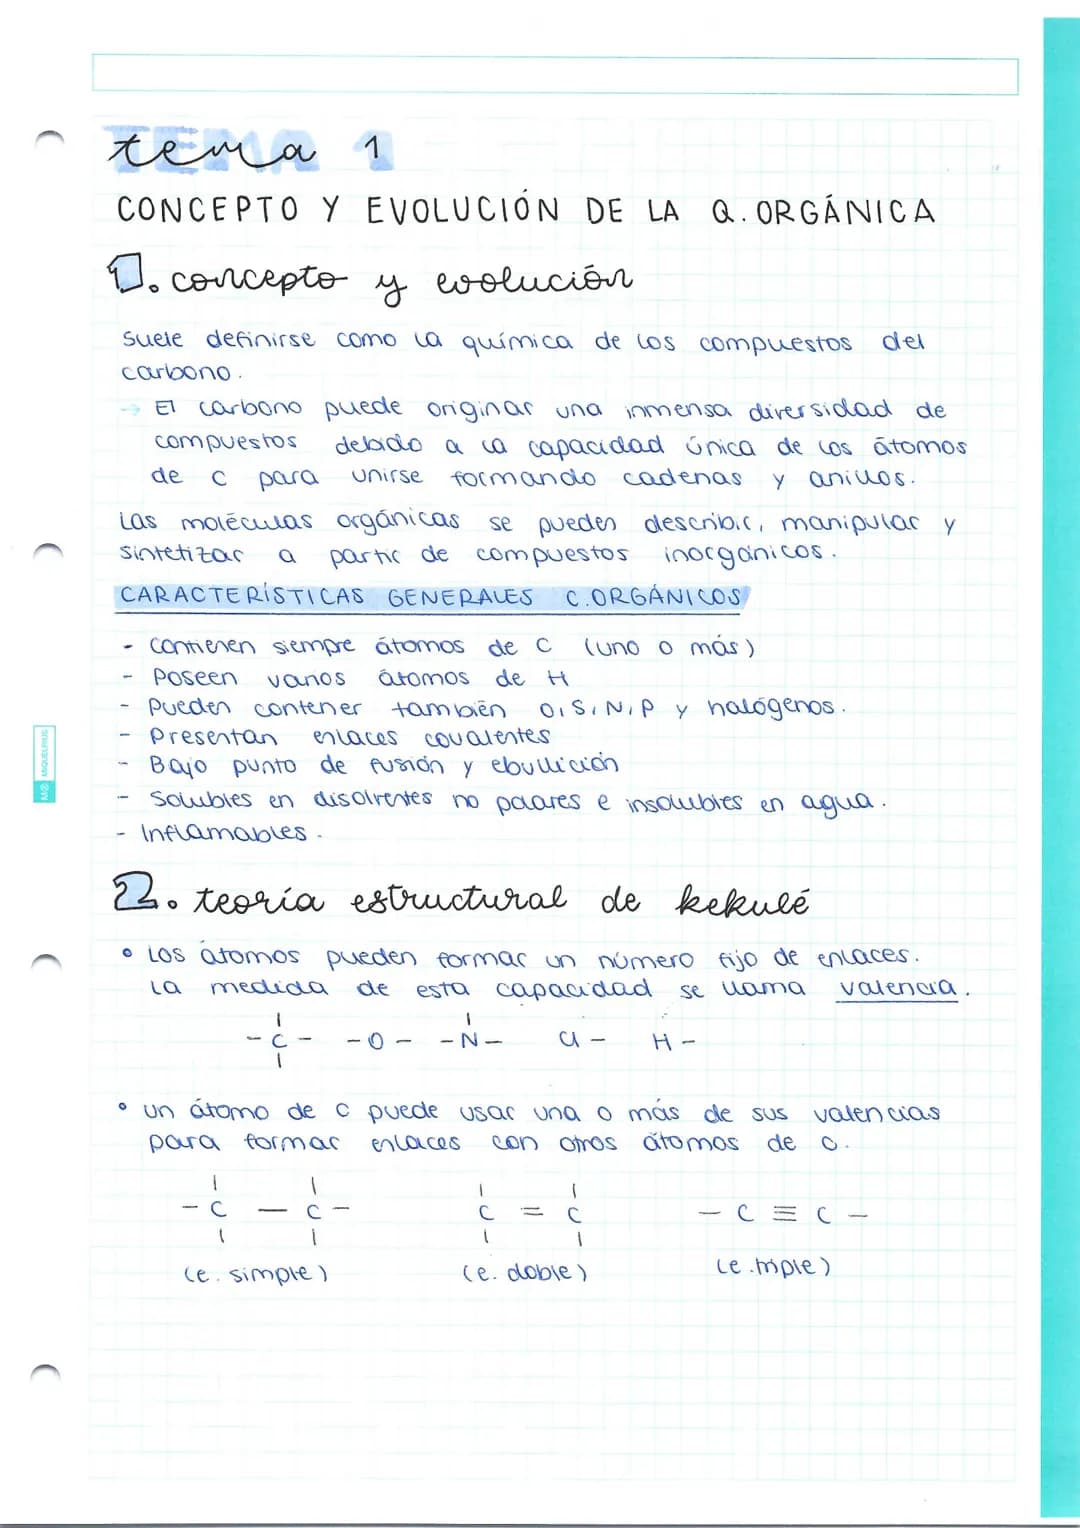 tema 1
CONCEPTO Y EVOLUCIÓN DE LA Q. ORGÁNICA
1. concepto y evolución
Suele definirse como la química de los compuestos del
carbono.
→ El carbono puede originar una inmensa diversidad de
compuestos debido a la capacidad única de los átomos
de C para unirse formando cadenas y anillos.
Las moléculas orgánicas se pueden describir, manipular y
sintetizar a partir de compuestos inorgánicos.
CARACTERÍSTICAS GENERALES C.ORGÁNICOS
- Contienen siempre átomos de C (uno o más)
- Poseen varios átomos de H
- Pueden contener también O, S, N, P y halógenos.
- Presentan enlaces covalentes
- Bajo punto de fusión y ebullición
- Solubles en disolventes no polares e insolubles en agua.
- Inflamables.
2. teoría estructural de kekulé
• Los átomos pueden formar un número fijo de enlaces.
La medida de esta capacidad se llama valencia.
- C - - O - - N - Cl - H -
• Un átomo de C puede usar una o más de sus valencias
para formar enlaces con otros átomos de C.
- C - C - C = C - C ≡ C -
(e. simple) (e. doble) (e. triple)
MIQUELRIUS